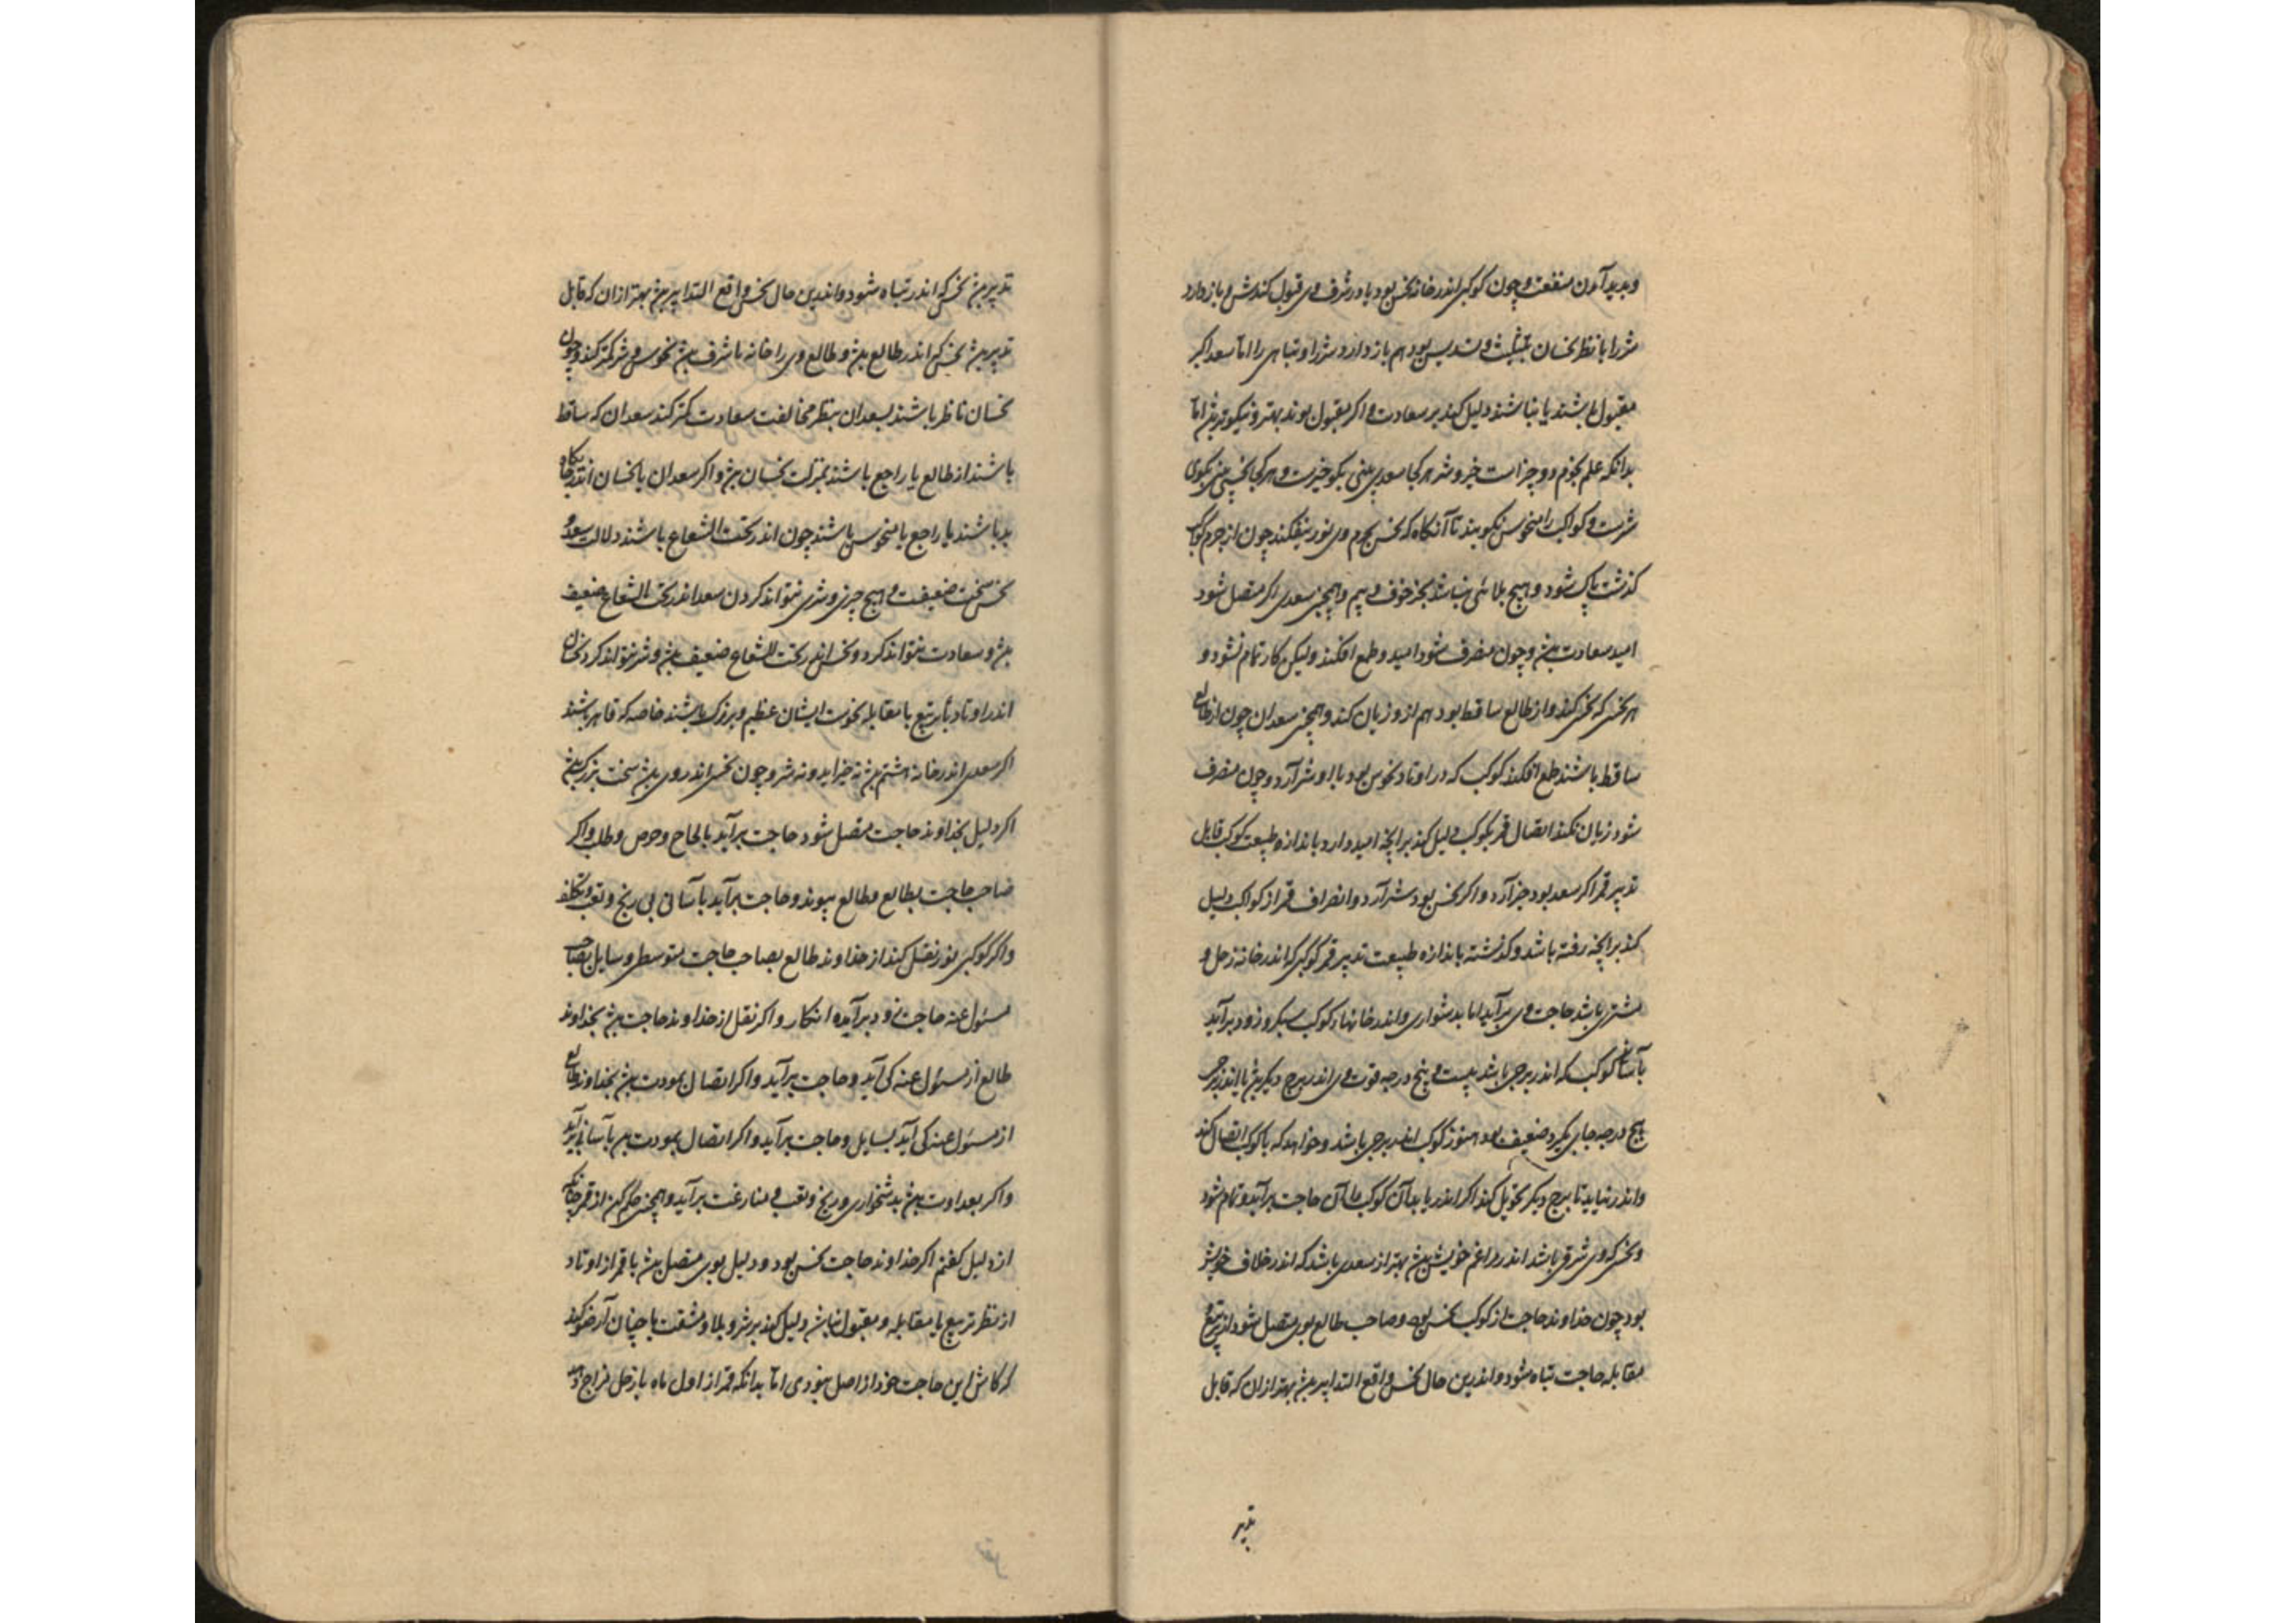 و پدید آمدن منفعت و چون کوکبی اندر خانه نحس بود یا در شرف وی قبول کندش و باز دارد
شر را با نظر نحسان بتثلیث و تسدیس بود هم باز دارد شر را و تباهی را اما سعد اکبر
مقبول باشند یا نباشند دلیل کند بر سعادت و اگر مقبول بوند بهتر و نیکوتر بود اما
بدانکه علم نجوم دو چیز است خیر و شر هر کجا سعدی بینی بگو خیرست و هر کجا نحسی بینی بگوی
شرست و کواکب را منحوس نگویند تا آنگاه که نحس بجرم وی نور بیفکند چون از جرم کوکب
گذشت پاک شود و هیچ بلائی نباشد بجز خوف و بیم و همچنین سعدی اگر متصل شود
امید سعادت بود و چون منصرف شود امید و طمع افکند ولیکن کار تمام نشود و
هر نحسی که نحسی کند و از طالع ساقط بود هم ازو زیان کند و همچنین سعدان چون از طالع
ساقط باشند طمع افکند کوکب که در اوتاد نحوس بود بلا و شر آرد و چون منصرف
شود زیان نکند اتصال قمر بکوکب دلیل کند بر آنچه امید دارد باندازه طبیعت کوکب قابل
تدبیر قمر اگر سعد بود خیر آرد و اگر نحس بود شر آرد و انصراف قمر از کواکب دلیل
کند بر آنچه رفته باشد و گذشته باندازه طبیعت تدبیر قمر کوکبی که اندر خانه زحل و
مشتری باشد حاجت وی برآید اما بدشواری و اندر خانهاء کوکب سبکرو زود برآید
بآسانی کوکب که اندر برجی باشد بیست و پنج درجه قوت وی اندر برج دیگر بود یا اندر برجی
پنج درجه جای گیرد ضعیف بود هنوز کوکب اندر برجی باشد و خواهد که با کوکب اتصال کند
و اندر نیابد تا برج دیگر تحویل کند اگر اندر یابد آن کوکب را آن حاجت برآید و تمام شود
و نحسی که وی شرقی باشد اندر مراغم خویش بود بهتر از سعدی باشد که اندر خلاف خویش
بود چون خداوند حاجت از کوکب نحس بود و صاحب طالع بوی متصل شود از تربیع
مقابله حاجت تباه شود و اندرین حال نحس واقع التدابیر بود بهتر از آن که قابل
تدبیر
تدبیر بود نحس که اندر تباه شود و اندرین حال نحس واقع التدابیر بود بهتر از آن که قابل
تدبیر بود نحس که اندر طالع بود و طالع وی را خانه یا شرف بود نحوس و شر کمتر کند و چون
نحسان ناظر باشند بسعدان بنظر مخالفت سعادت کمتر کند سعدان که ساقط
باشند از طالع یا راجع باشند بمنزلت نحسان بود و اگر سعدان یا نحسان اندر جایگاه
بد باشند یا راجع یا منحوس باشند چون اندر تحت الشعاع باشند دلالت سعد و
نحس سخت ضعیفست و هیچ چیزی و شری نتواند کردن سعد اندر تحت الشعاع ضعیف
بود و سعادت نتواند کرد و نحس اندر تحت الشعاع ضعیف بود و شر نتواند کرد نحسان
اندر اوتاد یا تربیع یا مقابله نحوست ایشان عظیم و بزرگ باشند خاصه که قاهر باشند
اگر سعدی اندر خانه هشتم بود نه خیر آید و نه شر و چون نحس اندر وی بود سخت بزرگ بود
اگر دلیل بخداوند حاجت متصل شود حاجت برآید بالحاح و حرص و طلب و اگر
صاحب حاجت بطالع مطالع پیوند و حاجت برآید بآسانی بی رنج و تعب و تکلف
و اگر کوکبی نور نقل کند از خداوند طالع بصاحب حاجت متوسطی و سایل بصاحب
مسئول عنه حاجت زود برآیده انکار و اگر نقل از خداوند حاجت بود بخداوند
طالع از مسئول عنه کی آید و حاجت برآید و اگر اتصال بمودت بود بخداوند طالع
از مسئول عنه کی آید بسایل و حاجت برآید و اگر اتصال بمودت بود بآسانی برآید
و اگر بعداوت بود بدشخواری و رنج و تعب و منازعت برآید و همچنین حکم کن از قمر چنانکه
از دلیل گفتم اگر خداوند حاجت نحس بود و دلیل بوی متصل بود یا قمر از اوتاد
از نظر تربیع یا مقابله و مقبول نباشد دلیل کند بر شر و بلا و مشقت یا چنان آرزو کند
که کاش این حاجت خود از اصل نبودی اما بدانکه قمر از اول ماه با زحل مزاج دهد